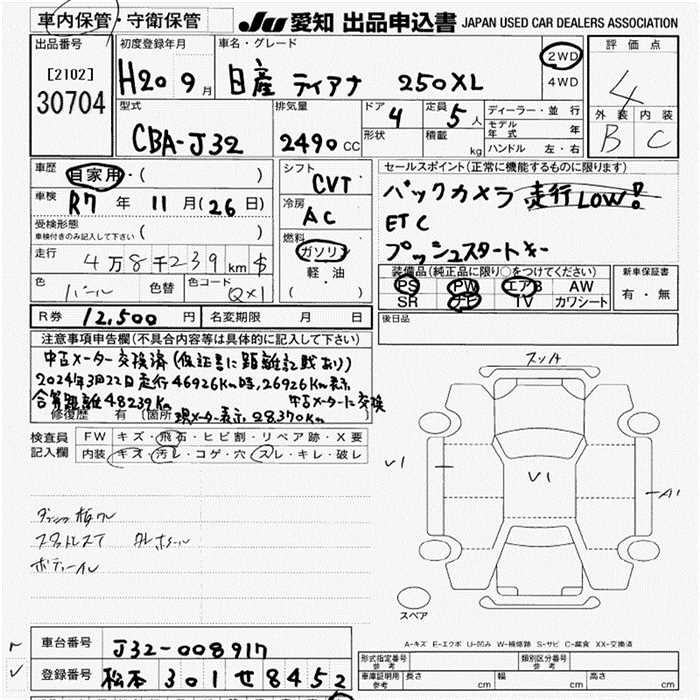 車内保管・守衛保管 JU 愛知 出品申込書 JAPAN USED CAR DEALERS ASSOCIATION
出品番号 [2102] 30704
初度登録年月 H20 9月
車名・グレード 日産 ティアナ 250XL
2WD
4WD
評価点 4
外装 B 内装 C
型式 CBA-J32
排気量 2490 CC
ドア 4
形状
定員 5人
積載 kg
ディーラー・並行
モデル年式 年
ハンドル 左・右
車歴 自家用・( )
車検 R7年 11月(26日)
受検形態
車検付きのみ記入して下さい ( )
走行 4万8千239km $
色 パール 色替 色コード QX1
シフト CVT
冷房 AC
燃料 ガソリン
軽油
( )
セールスポイント(正常に機能するものに限ります)
バックカメラ 走行LOW!
ETC
プッシュスタートキー
装備品(純正品に限り○をつけてください)
PS PW エアB AW
SR ナビ TV カワシート
新車保証書
有・無
R券 12,500円 名変期限 月 日
後日品
注意事項申告欄(不具合内容等は具体的に記入して下さい)
中古メーター交換済(保証書に距離記載あり)
2024年3月22日走行46926Km時,26926Km表示
合算距離48239Km 中古メーターに交換
修復歴 有 [箇所 現メーター表示 28,370Km
検査員記入欄 FW キズ・飛石・ヒビ割・リペア跡・X要
内装 キズ・汚レ・コゲ・穴・スレ・キレ・破レ
スソA
V1
V1
A1
スペア
A-キズ E-エクボ U-凹み W-補修跡 S-サビ C-腐食 XX-交換済
車台番号 J32-008917
登録番号 松本 301 せ 8452
形式指定番号 参考
類別区分番号 参考
車庫証明用 参考
長さ cm 幅 cm 高さ cm